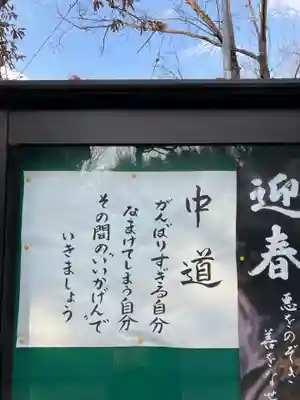 中道
がんばりすぎる自分
なまけてしまう自分
その間のいいかげんで
いきましょう
迎春
悪をのぞき
善をなせ